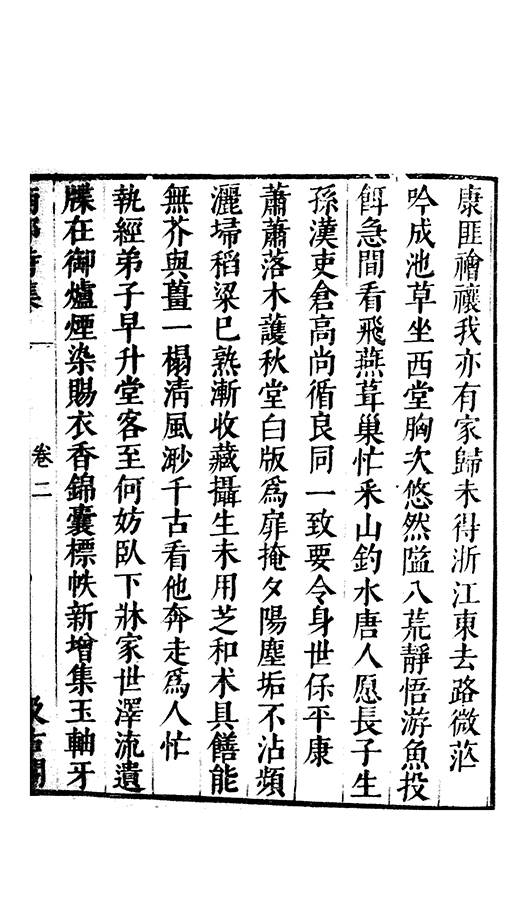 康匪禬禳我亦有家歸未得浙江東去路微茫
吟成池草坐西堂胸次悠然隘八荒靜悟游魚投
餌急間看飛燕葺巢忙釆山釣水唐人愿長子生
孫漢吏倉高尚循良同一致要令身世保平康
蕭蕭落木護秋堂白版爲扉掩夕陽塵垢不沾頻
灑埽稻粱已熟漸收藏攝生未用芝和术具饍能
無芥與薑一榻清風渺千古看他奔走爲人忙
執經弟子早升堂客至何妨臥下牀家世澤流遺
牒在御爐煙染賜衣香錦囊標帙新增集玉軸牙
卷二